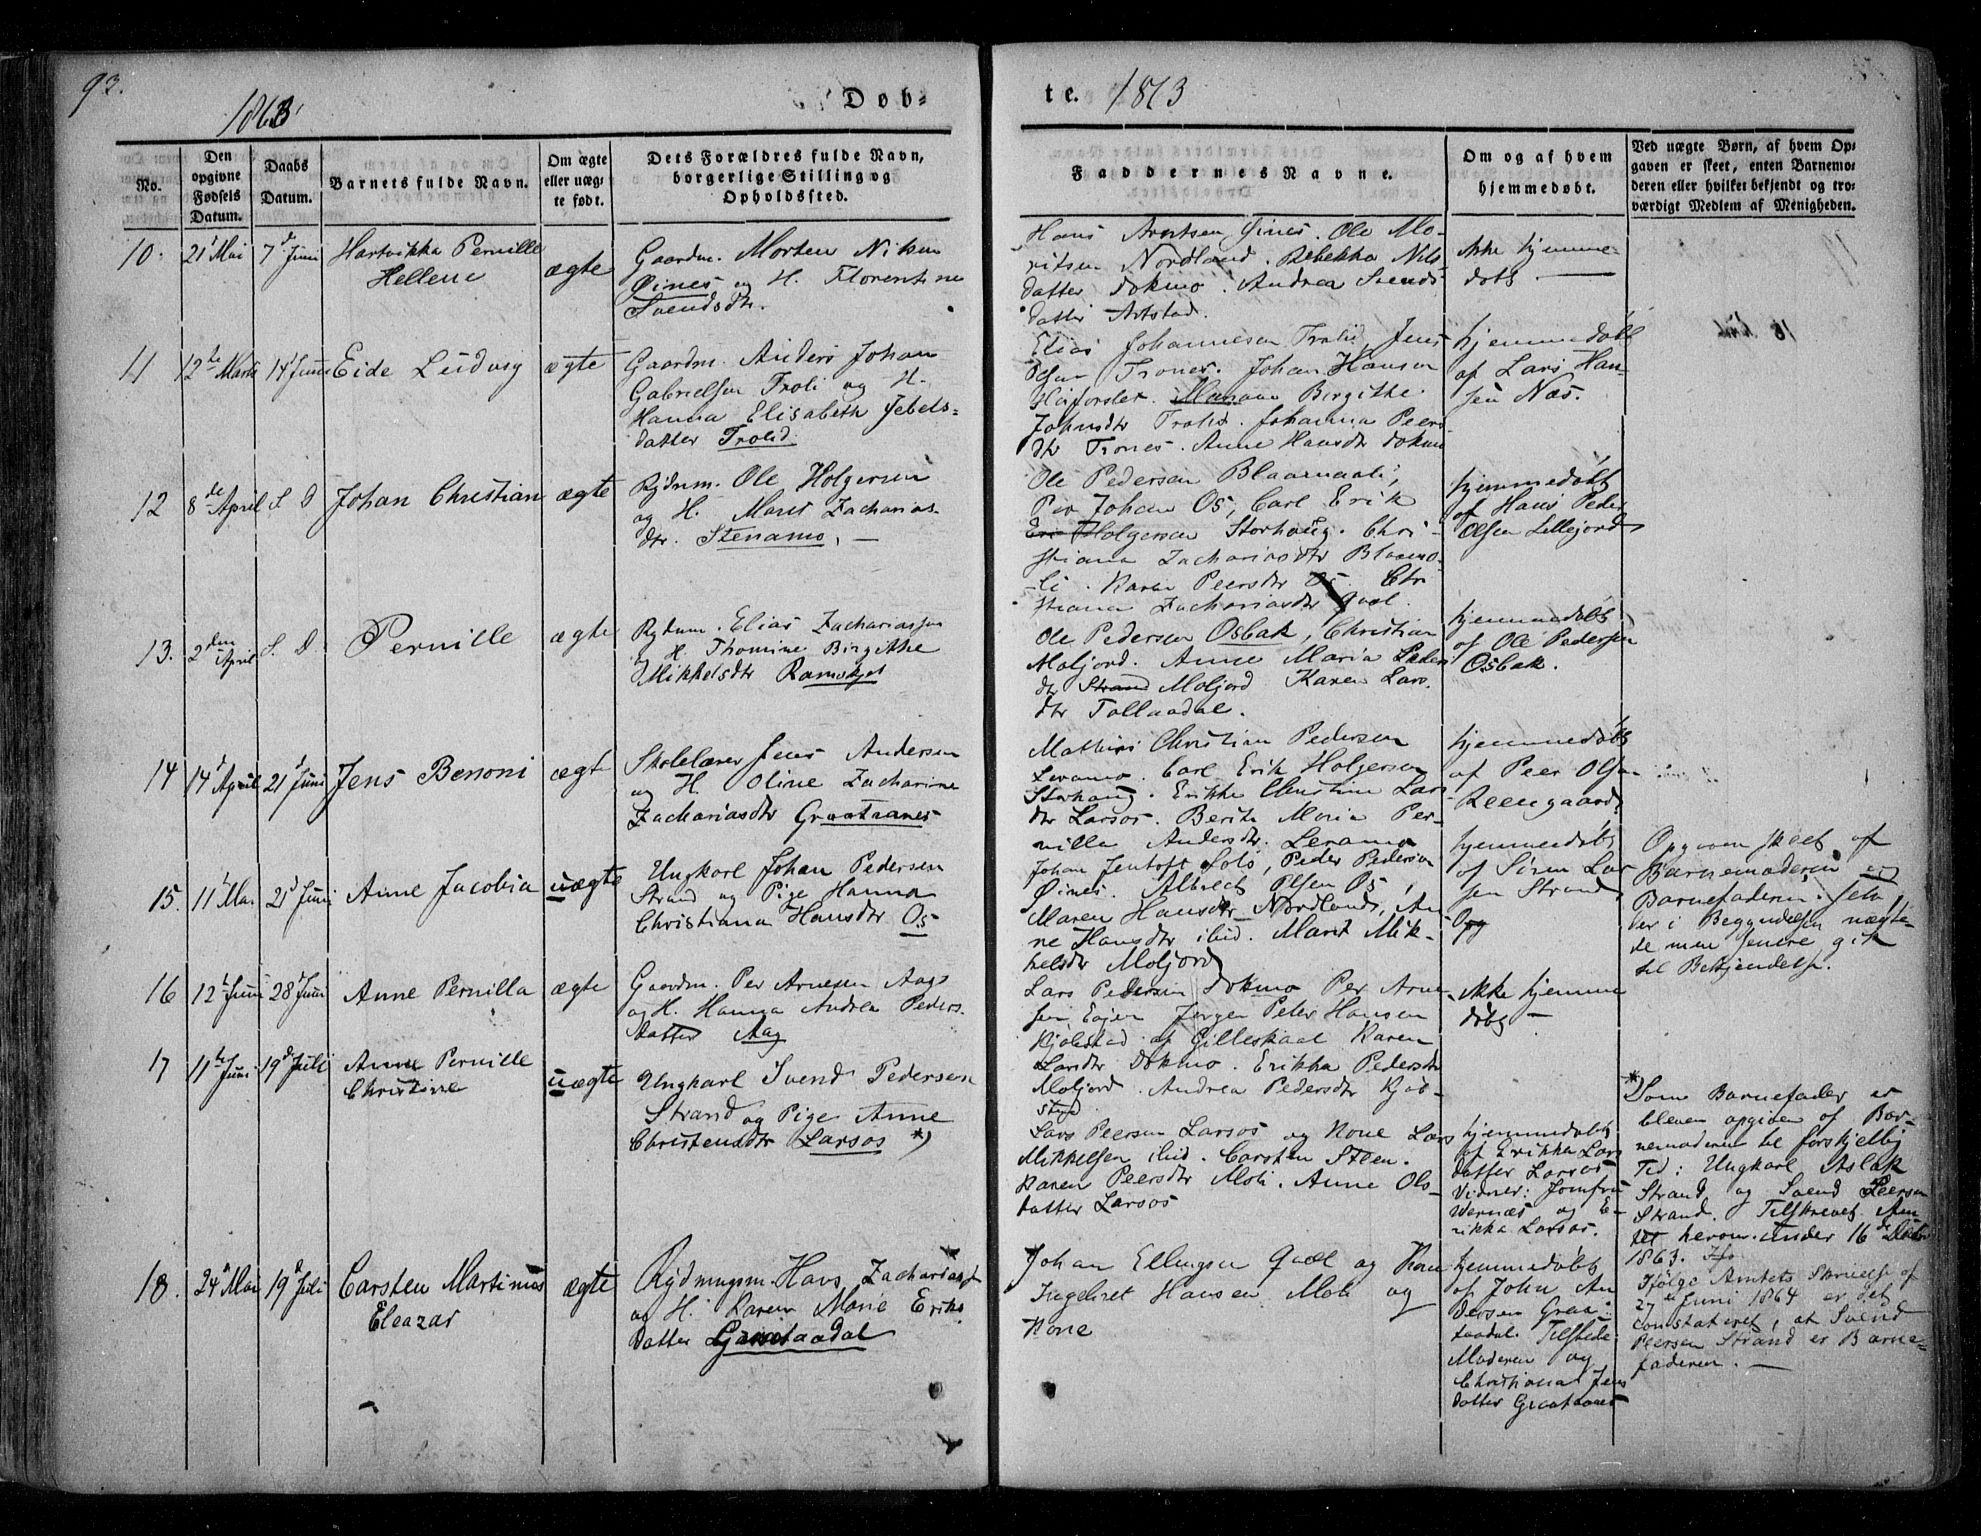 93.
1863
Döb-
te. 1863
No.
Den
opgivne
Fødsels
Datum.
Daabs
Datum.
Barnets fulde Navn.
Om ægte
eller uæg-
te født.
Dets Forældres fulde Navn,
borgerlige Stilling og
Opholdssted.
Faddernes Navne.
Om og af hvem
hjemmedøbt.
Ved uægte Børn, af hvem Op-
gaven er skeet, enten Barnemo-
deren eller hvilket bekjendt og tro-
værdigt Medlem af Menigheden.
10.
21 Mai
7de Juni
Hartvikka Pernille
Hellene
ægte
Gaardm. Morten Nilsen
Øines og H. Florentine
Svendsdtr.
Hans Arntsen Øines. Ole Mo-
ritsen Nordland. Rebekka Nils
datter Dokmo. Andrea Svends
datter Artstad.
Ikke hjemme-
døbt
11
12te Marts
14 Juni
Eide Ludvig
ægte
Gaardm. Anders Johan
Gabrielsen Troli og H.
Hanna Elisabeth Jebels-
datter Trolid
Elias Johannesen Trolid, Jens
Olsen Trones. Johan Hansen
Høiforslet. Birgithe
Johnsdtr Trolid. Johanna Peers
dtr Trones. Anne Hansdtr Dokmo
hjemmedøbt
af Lars Han-
sen Næs.
12
8de April
S. D
Johan Christian
ægte
Rydnm. Ole Holgersen
og H. Maret Zacharias-
dtr. Stenamo.
Ole Pedersen Blaamoli,
Per Johan Os, Carl Erik
Holgersen Storhaug. Chri-
stiana Zachariasdtr Blaamo-
li. Karen Peersdtr Os. Chri
stiana Zachariasdtr Qvæl.
hjemmedøbt
af Hans Peder
Olsen Lillejord
13.
2den April
S. D.
Pernille
ægte
Rydnm. Elias Zachariassen
og H. Thomine Birgithe
Mikkelsdtr Ramskjel
Ole Pedersen Osbak, Christian
Moljord. Anne Maria Peders
dtr Strand Moljord Karen Lars
dtr Tollaadal.
hjemmedøbt
af Ole Pedersen
Osbak.
14
14d April
21d Juni
Jens Benoni
ægt
Skolelærer Jens Andersen
og H. Oline Zacharine
Zachariasdtr Graataanes
Mathias Christian Pedersen
Leramo. Carl Erik Holgersen
Storhaug. Erikke Christine Lars
dtr Larsos. Berith Maria Per-
nilla Andersdtr. Leramo
hjemmedøbt
af Peer Olsen
Reengaard.
15.
11 Mai
21d Juni
Anne Jacobia
uægte
Ungkarl Johan Pedersen
Strand og Pige Hanna
Christiana Hansdtr Os
Johan Jentoft Sols, Peder Pedersen
Øines. Albrect Olsen Os,
Maren Hansdtr Nordland, An-
ne Hansdtr ibid. Maret Mik-
kelsdtr Moljord
hjemmedøbt
af Sören Lar
sen Strand
Opg
Opgaven skeet af
Barnemoderen og
Barnefaderen. Sel-
ver i Begyndelsen nægte-
de men senere gik
til Bekjendelse.
16
12 Juni
28d Juni
Anne Pernilla
ægte
Gaardm. Per Arnesen Aag
og H. Hanna Andrea Peders-
datter Aag
Lars Pedersen Dokmo Per Arne
sen Eajen Jørgen Peter Hansen
Kjolestad af Gilleskaal Karen
Larsdtr Dokmo. Erikka Pedersdtr
Moljord. Andrea Pedersdtr Kjol-
stad
Ikke hjemme
døbt
17
11te Juni
19d Juli
Anne Pernille
Christine
uægte
Ungkarl Svend Pedersen
Strand og Pige Anne
Christensdtr Larsos *)
Lars Peersen Larsos og Kone Lars
Mikkelsen ibid. Carsten Steen.
Karen Peersdtr Moli. Anne Ols-
datter Larsos
hjemmedøbt
af Erikka Lars
datter Larsos
Vidner: Jomfru
Wernæs og E-
rikka Larsos.
* Som Barnefader er
bleven opgiven af Bar-
nemoderen til forskjellig
Tid: Ungkarl Aslak
Strand og Svend Peersen
Strand. Tilskrevet Am
tet herom under 16de Decbr
1863.
Ifölge Amtets Skrivelse af
27de Juni 1864 er det
constateret, at Svend
Peersen Strand er Barne-
faderen.
18.
24d Mai
19d Juli
Carsten Martinus
Eleazar
ægte
Rydningsm. Hans Zachariassen
og H. Karen Marie Eriks
datter Graataadal
Johan Ellingsen Qvæl og Kone
Ingebret Hansen Moli og
Kone
hjemmedøbt
af John An
dersen Graa-
taadal. Tilstede
Moderen og
Christiana Jens
datter Graataanes